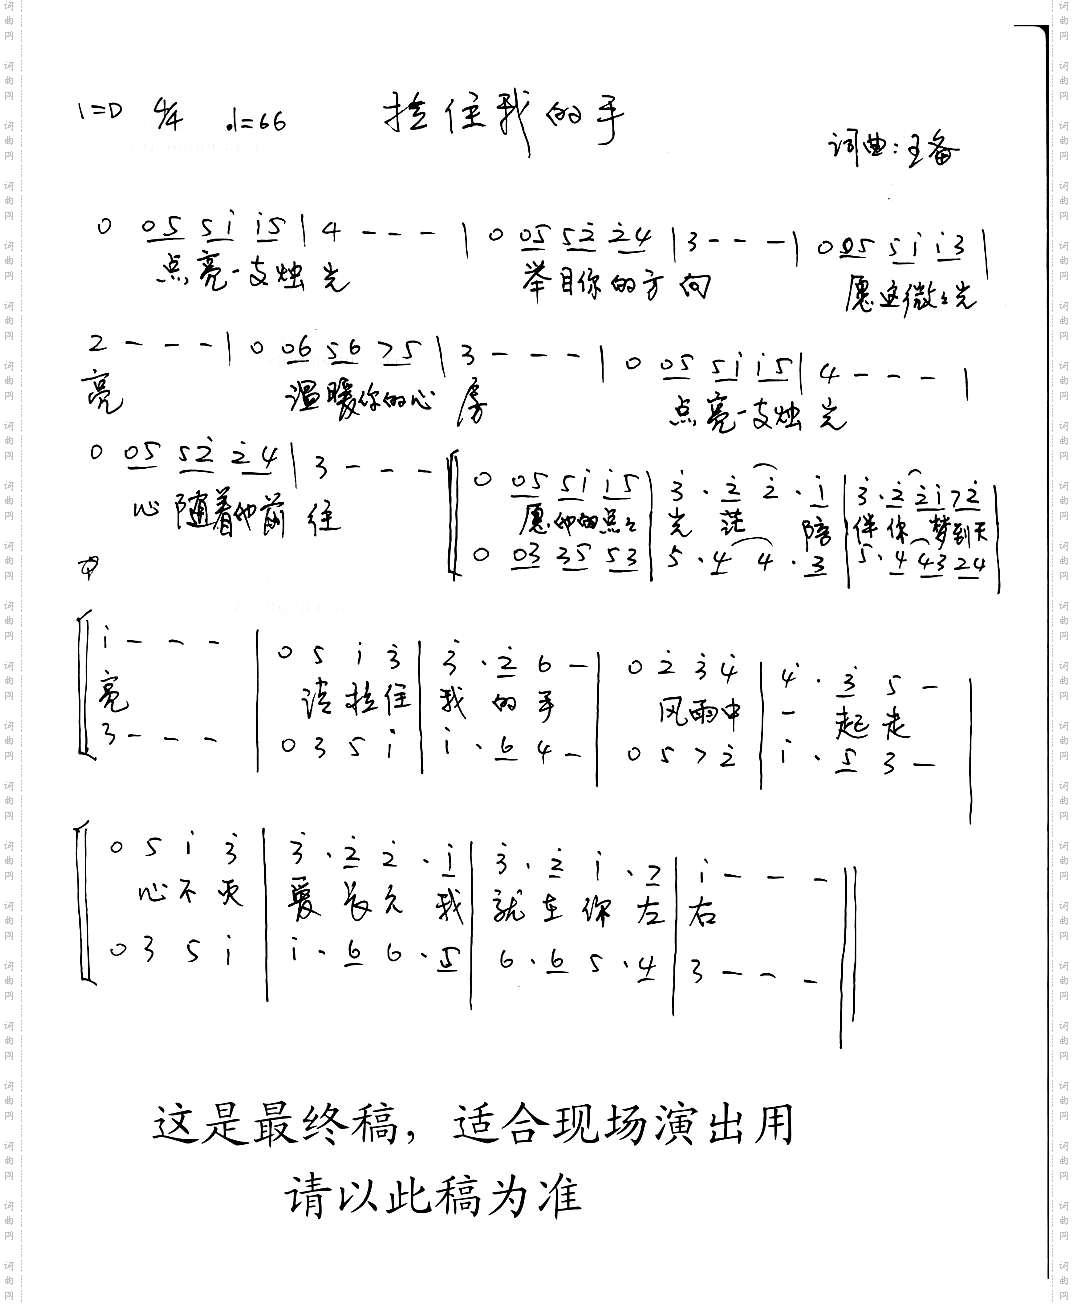 1=D 4/4 ♩=66 拉住我的手
词曲:王备
0 05 5i i5 | 4 - - - | 0 05 52 24 | 3 - - - | 0 05 5i i3 |
点亮一支烛光 举目你的方向 愿这微微光
2 - - - | 0 06 56 75 | 3 - - - | 0 05 5i i5 | 4 - - - |
亮 温暖你的心房 点亮一支烛光
0 05 52̇ 2̇4 | 3 - - - 0 05 5i i5 | 3̇ · 2̇ 2̇ · i | 3̇ · 2̇ 2̇i 72̇
心随着你前往 愿你的点点 光芒 陪伴你 梦到天
0 03 35 53 | 5 · 4 4 · 3 | 5 · 4 43 24
i - - - | 0 5 i 3̇ | 3̇ · 2̇ 6 - | 0 2̇ 3̇ 4̇ | 4̇ · 3̇ 5 - |
亮 请拉住 我的手 风雨中 一起走
3 - - - | 0 3 5 i | i · 6 4 - | 0 5 7 2̇ | i · 5 3 - |
0 5 i 3̇ | 3̇ · 2̇ 2̇ · i | 3̇ · 2̇ i · 7 | i - - - ||
心不灭 爱长久 我 就在你左 右
0 3 5 i | i · 6 6 · 5 | 6 · 6 5 · 4 | 3 - - - ||
这是最终稿，适合现场演出用
请以此稿为准